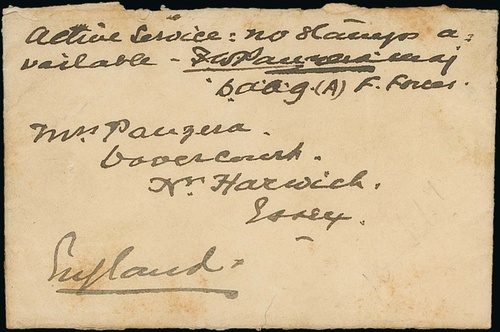 Active Service: no stamps a=
vailable - F.W. Panzera maj
b.a.a.g. (A) F. Force.
Mrs Panzera.
Dovercourt.
Nr. Harwich.
Essex.
England.